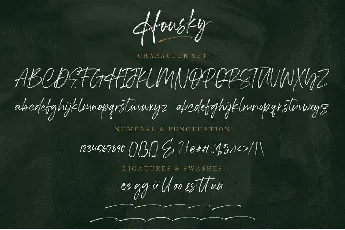 Housky
CHARACTER SET
ABCDEFGHIJKLMNOPQRSTUVWXYZ
abcdefghijklmnopqrstuvwxyz abcdefghijklmnopqrstuvwxyz
NUMERAL & PUNCTUATION
1234567890
LIGATURES & SWASHES